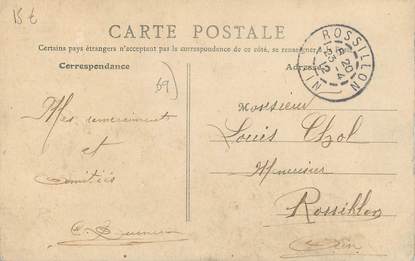 15 €
CARTE POSTALE
Certains pays étrangers n'acceptant pas la correspondance de ce côté, se renseigner
Correspondance
Adresse
ROSSILLON
20
AIN
Mes remerciements
et
Amitiés
Monsieur
Louis
Menuisier
Rossillon
Ain